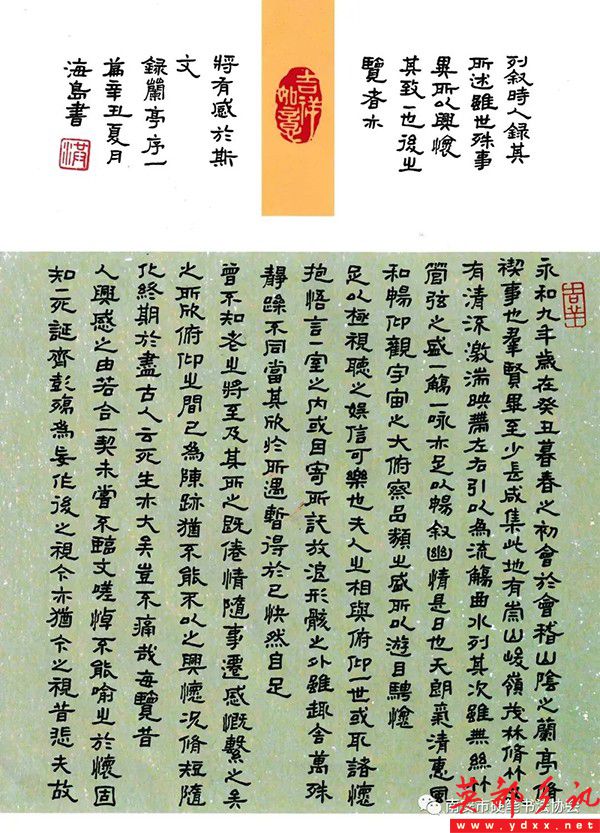 永和九年歲在癸丑暮春之初會於會稽山陰之蘭亭脩
禊事也羣賢畢至少長咸集此地有崇山峻嶺茂林脩竹又
有清流激湍映帶左右引以為流觴曲水列其次雖無絲竹
管弦之盛一觴一咏亦足以暢叙幽情是日也天朗氣清惠風
和暢仰觀宇宙之大俯察品類之盛所以游目騁懷
足以極視聽之娛信可樂也夫人之相與俯仰一世或取諸懷
抱悟言一室之内或因寄所託放浪形骸之外雖趣舍萬殊
靜躁不同當其欣於所遇暫得於己快然自足
曾不知老之將至及其所之既倦情隨事遷感慨繫之矣
之所欣俯仰之間已為陳跡猶不能不以之興懷況脩短隨
化終期於盡古人云死生亦大矣豈不痛哉每覽昔
人興感之由若合一契未嘗不臨文嗟悼不能喻之於懷固
知一死誕齊彭殤為妄作後之視今亦猶今之視昔悲夫故
列叙時人錄其
所述雖世殊事
異所以興懷
其致一也後之
覽者亦
吉祥
如意
將有感於斯
文
錄蘭亭序一
篇辛丑夏月
海島書
南安市硬笔书法协会
英都资讯
www.ydxx.net